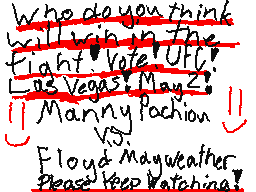 Who do you think
will win in the
fight! Vote! UFC!
Las Vegas! May 2!
Manny Pachiou
VS.
Floyd Mayweather
Please Keep Watching!